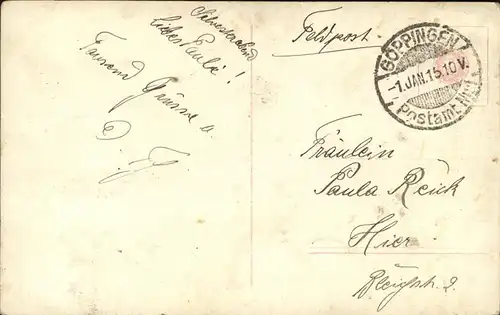 Silvesterabend
Liebes Paule!
Tausend Grüsse u.
Feldpost.
GÖPPINGEN
-1.JAN.15.10V.
Postamt Nr.1
Fräulein
Paula Reick
Hier
Bleichstr. 2.